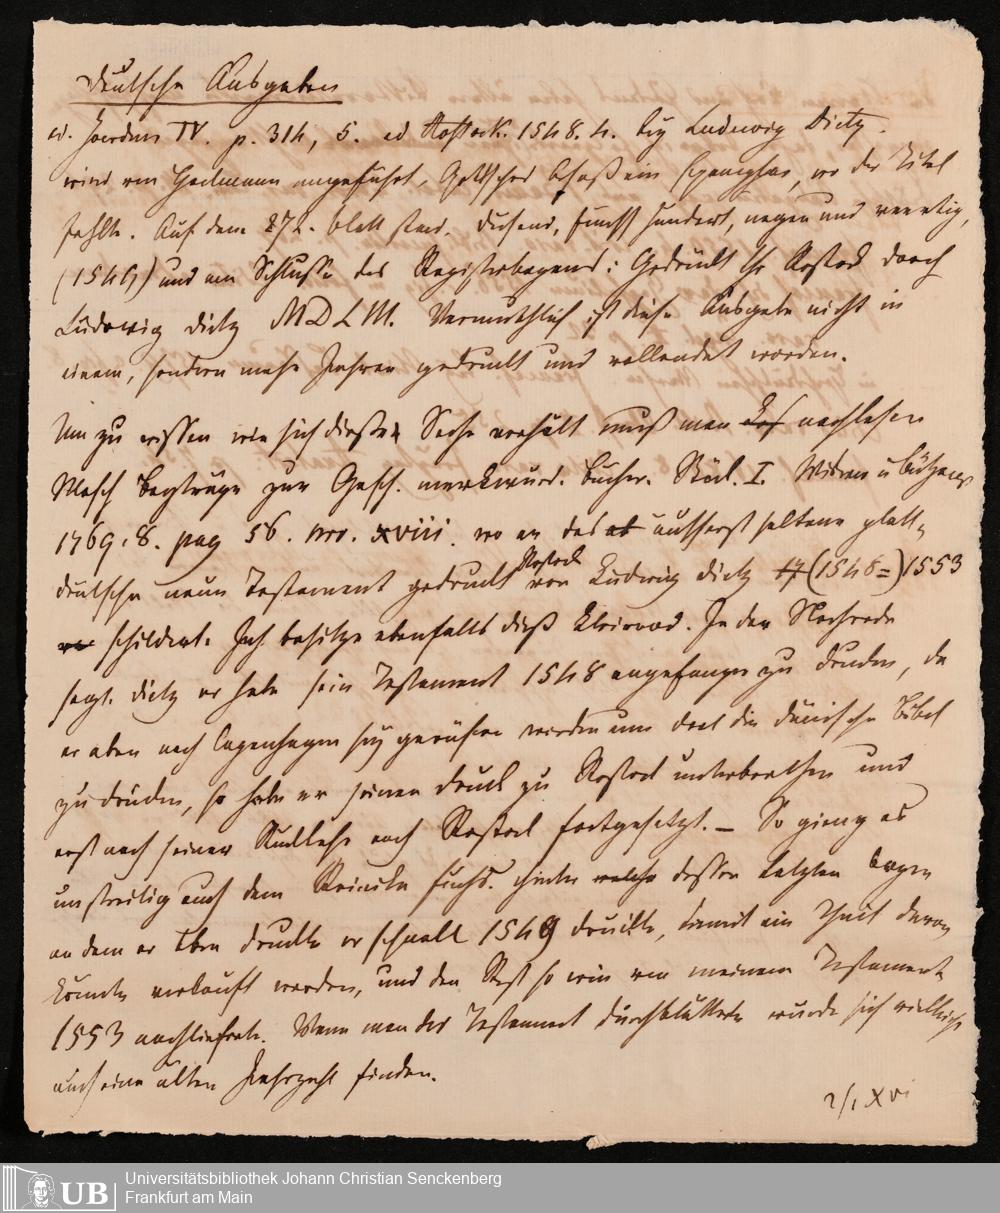 Deutsche Ausgaben
cf. Joerdens IV. p. 314, 5. ed Rostock. 1548. 4. bey Ludewig Dietz.
wird von Hackmann angeführt, Gottsched besaß ein Exemplar, wo der Titel
fehlte. Auf dem 272. Blatt stand. Dusend, fünff hundert, negen und veertig,
(1549) und am Schlusse des Registerbogens: Gedrückt tho Rostock dorch
Ludowig Dietz MDLIII. Vermuthlich ist diese Ausgabe nicht in
einem, sondern mehr Jahren gedruckt und vollendet worden.
Um zu wissen wie sich diese Sache verhält muß man nachlesen
Masch Beyträge zur Gesch. merkwürd. Bücher. Stück. I. Wismar u Bützow
1769. 8. pag 56. nro. xviii. wo er das äusserst seltene platt-
deutsche neue Testament gedruckt Rostock von Ludwig Dietz (1548=)1553
schildert. Ich besitze ebenfalls dieß Kleinod. In der Nachrede
sagt. Dietz er habe sein Testament 1548 angefangen zu drucken, da
er aber nach Copenhagen sey gerufen worden um dort die dänische Bibel
zu drucken, so habe er seinen Druck zu Rostock unterbrochen und
erst nach seiner Rückkehr nach Rostock fortgesetzt. – So gieng es
unstreitig auch dem Reinike Fuchs. hinter welche dessen letzten Bogen
an dem er eben druckte er schnell 1549 drückte, damit ein Theil davon
könnte verkauft werden, und den Rest so wie von meinem Testamente
1553 nachlieferte. Wenn man das Testament durchblätterte würde sich vielleicht
auch eine ältere Jahrzahl finden.
2/1 XVI
UB
Universitätsbibliothek Johann Christian Senckenberg
Frankfurt am Main